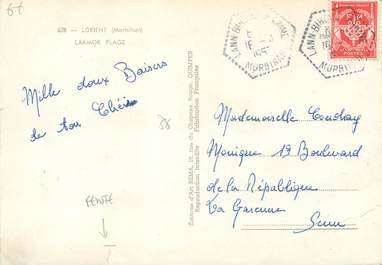 6€
628 - LORIENT (Morbihan)
LARMOR PLAGE
Mille doux Baisers
de ton Chéri
58
FENTE
Éditions d'Art REMA, 18, rue du Chapeau Rouge, QUIMPER
Reproduction interdite - Fabrication Française
LANN-BIHOUÉ
16 - 
195
MORBIHAN
LANN-BIHOUÉ
MORBIHAN
F M
POSTES
Mademoiselle
Monique 19 Boulevard
de la République
La Garenne
Seine